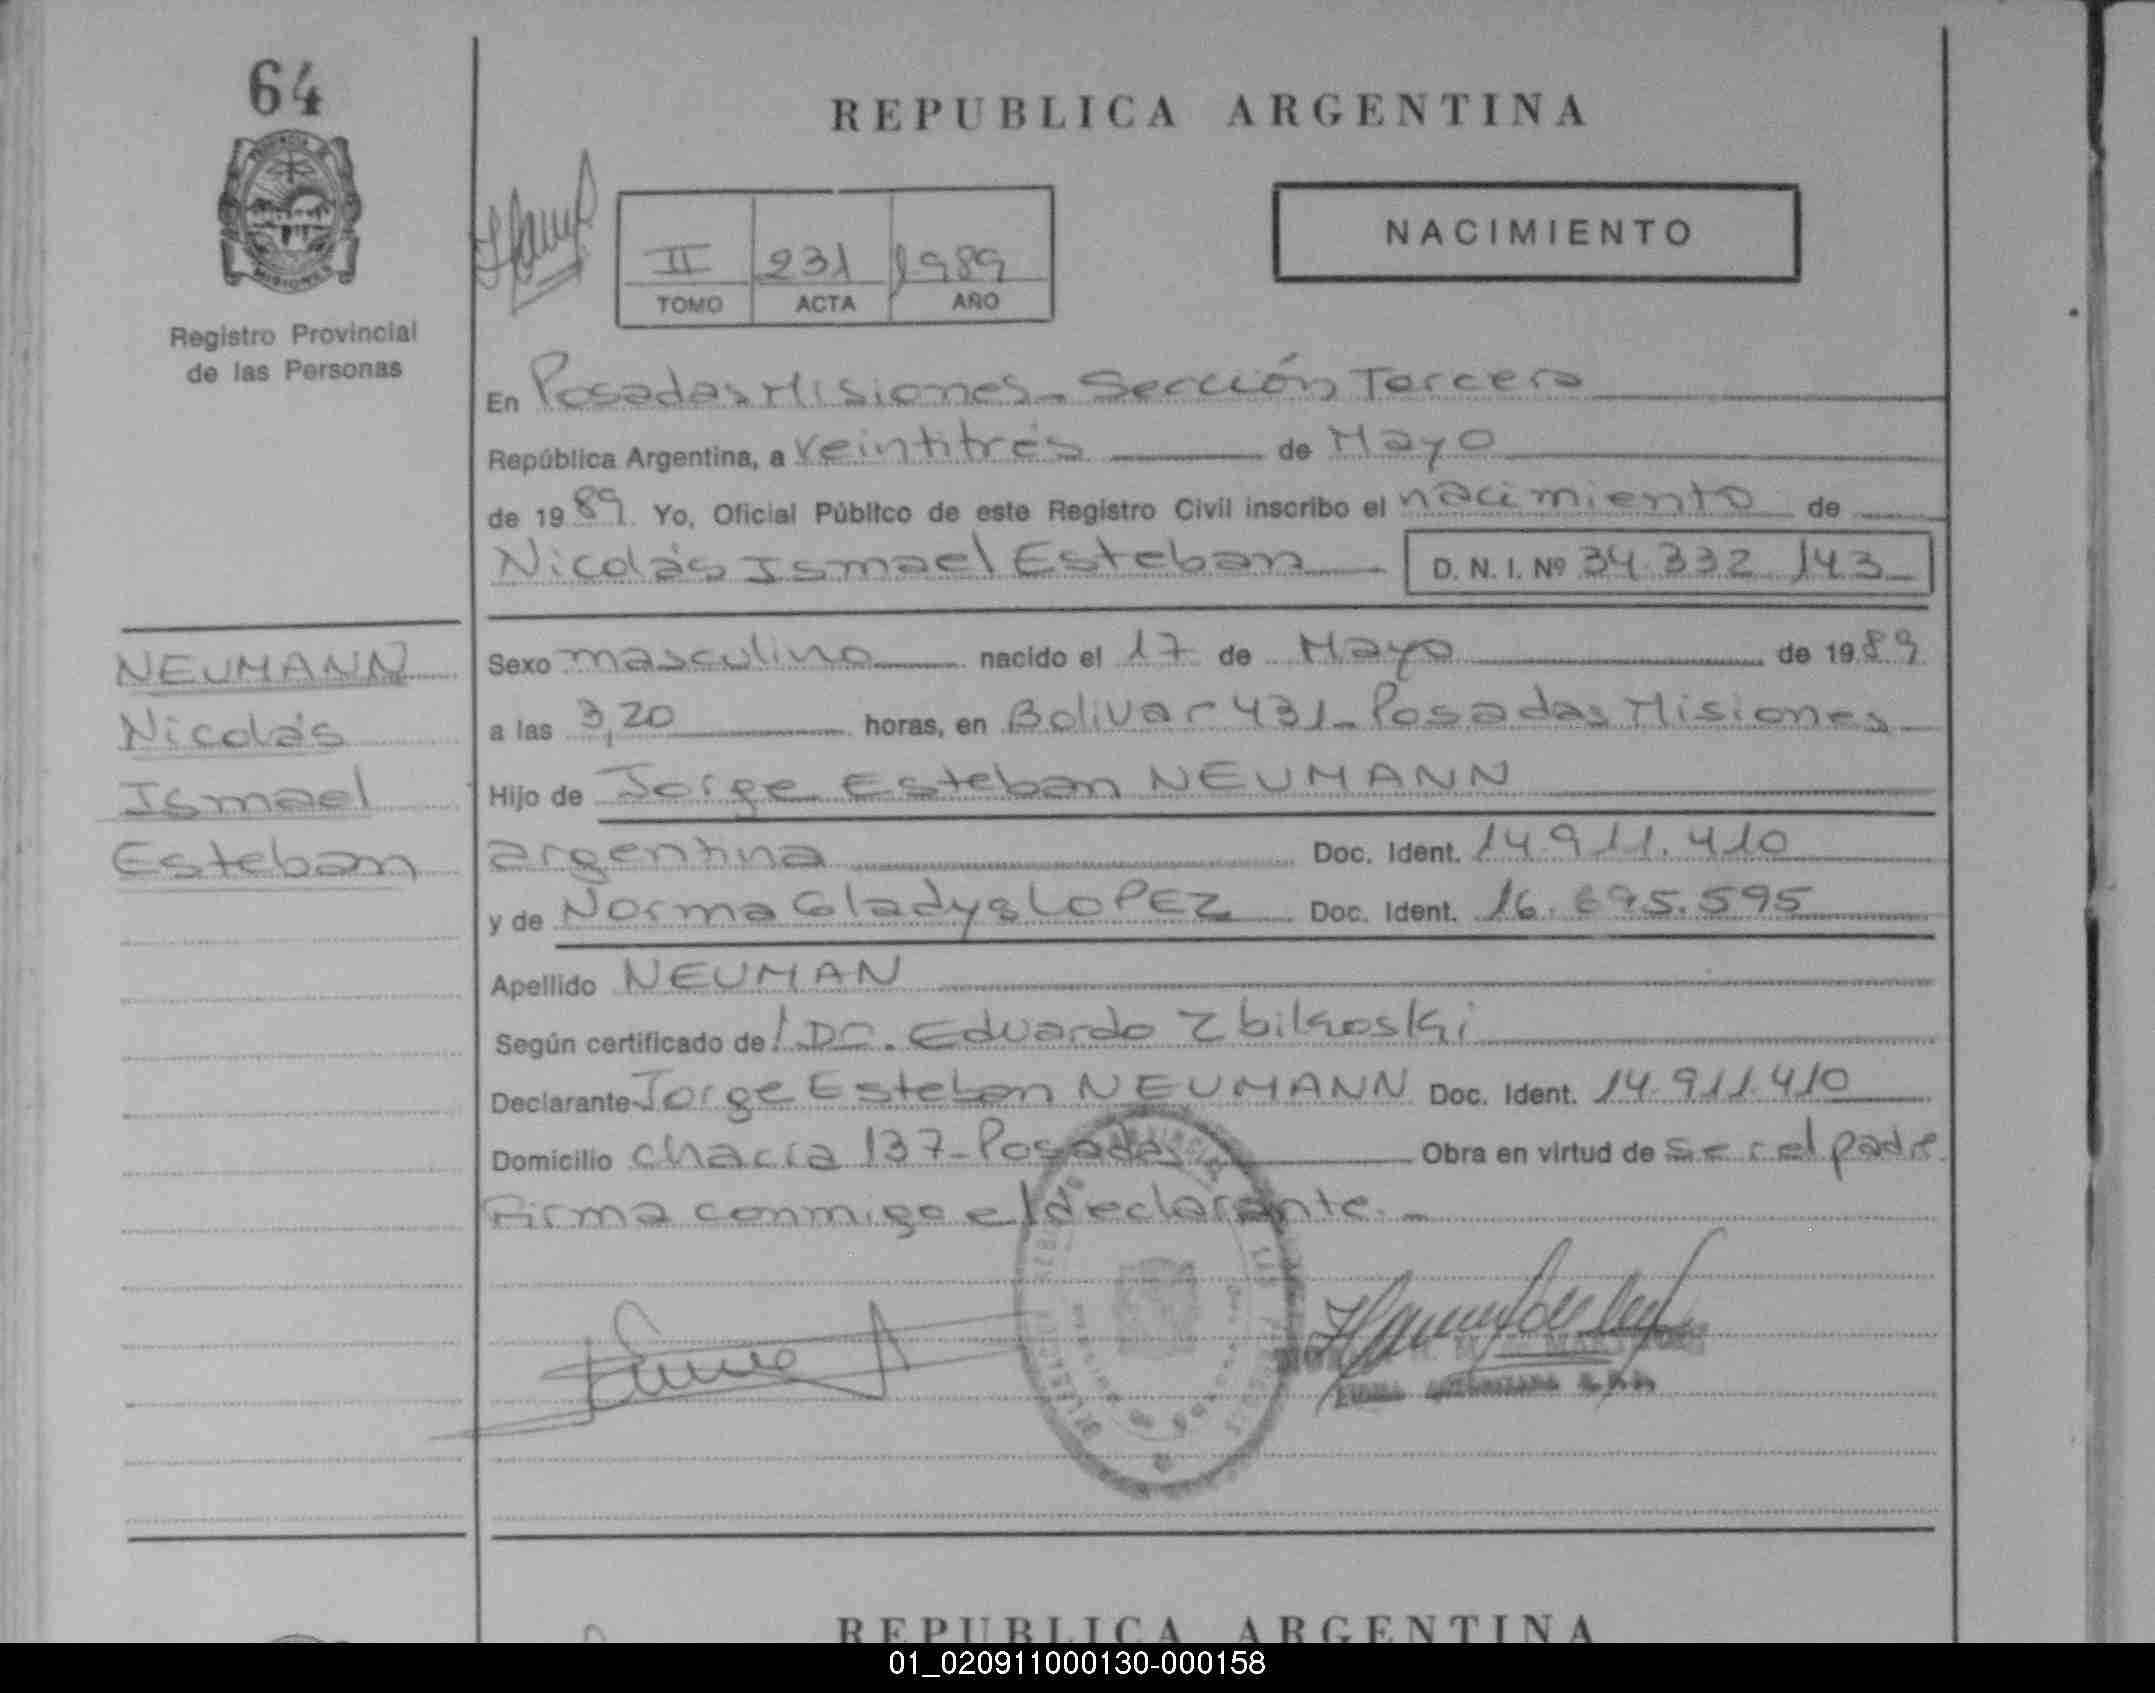 64
REPUBLICA ARGENTINA
NACIMIENTO
II 231 1989
TOMO ACTA AÑO
Registro Provincial
de las Personas
En Posadas, Misiones - Sección Tercera
República Argentina, a veintitrés de Mayo
de 1989 Yo, Oficial Público de este Registro Civil inscribo el nacimiento de
Nicolás Ismael Esteban D. N. I. Nº 34.332.143
NEUMANN
Nicolás
Ismael
Esteban
Sexo masculino nacido el 17 de Mayo de 1989
a las 3,20 horas, en Bolivar 431 - Posadas, Misiones
Hijo de Jorge Esteban NEUMANN
argentina Doc. Ident. 14.911.410
y de Norma Gladys LOPEZ Doc. Ident. 16.695.595
Apellido NEUMAN
Según certificado de Dr. Eduardo Zbikoski
Declarante Jorge Esteban NEUMANN Doc. Ident. 14.911.410
Domicilio chacra 137 - Posadas Obra en virtud de ser el padre
Firma conmigo el declarante. -
REPUBLICA ARGENTINA
01_020911000130-000158